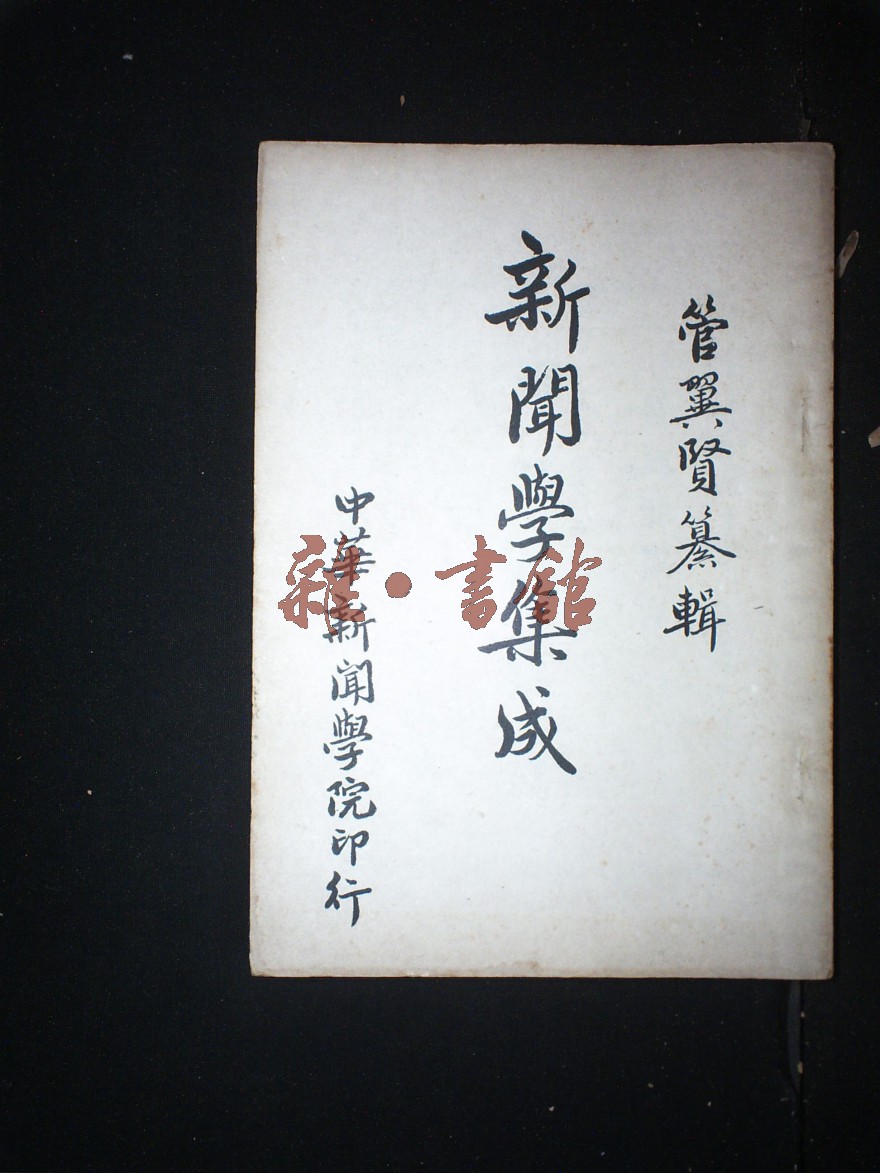 管翼賢纂輯
新聞學集成
中華新聞學院印行
雜·書館